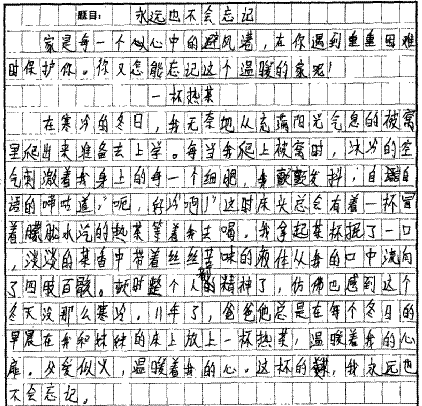 题目：永远也不会忘记
家是每一个人心中的避风港，在你遇到重重困难
时保护你。你又怎能忘记这个温暖的家呢！
一杯热茶
在寒冷的冬日，我无奈地从充满阳光气息的被窝
里爬出来准备去上学。每当我爬上被窝时，冰冷的空
气刺激着我身上的每一个细胞，我颤颤发抖，自言自
语的嘀咕道，“呃，好冷啊！”这时床头总会有着一杯冒
着朦胧水汽的热茶等着我去喝。我拿起茶杯抿了一口
，淡淡的茶香中带着丝丝苦味的液体从我的口中流向
了四肢百骸。顿时整个人都精神了，仿佛也感到这个
冬天没那么寒冷。11年了，爸爸他总是在每个冬日的
早晨在我和妹妹的床上放上一杯热茶，温暖着我的心
扉。父爱似火，温暖着我的心。这杯的，我永远也
不会忘记。